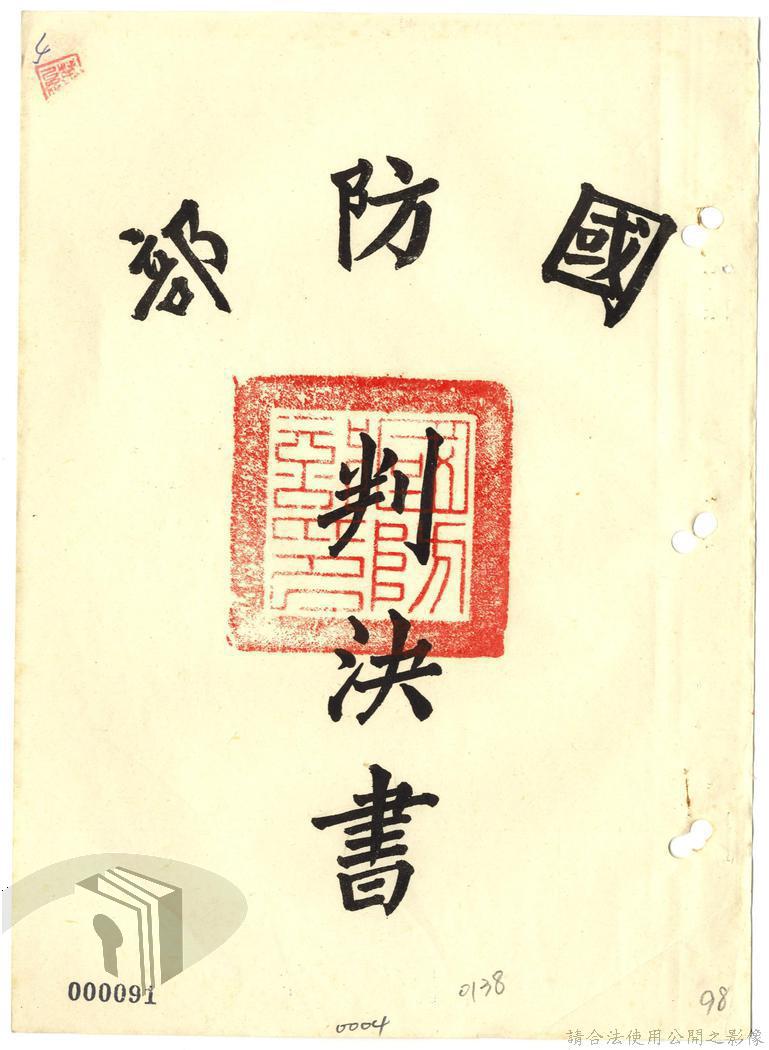 4
國防部
判決書
000091
0138
0004
98
請合法使用公開之影像